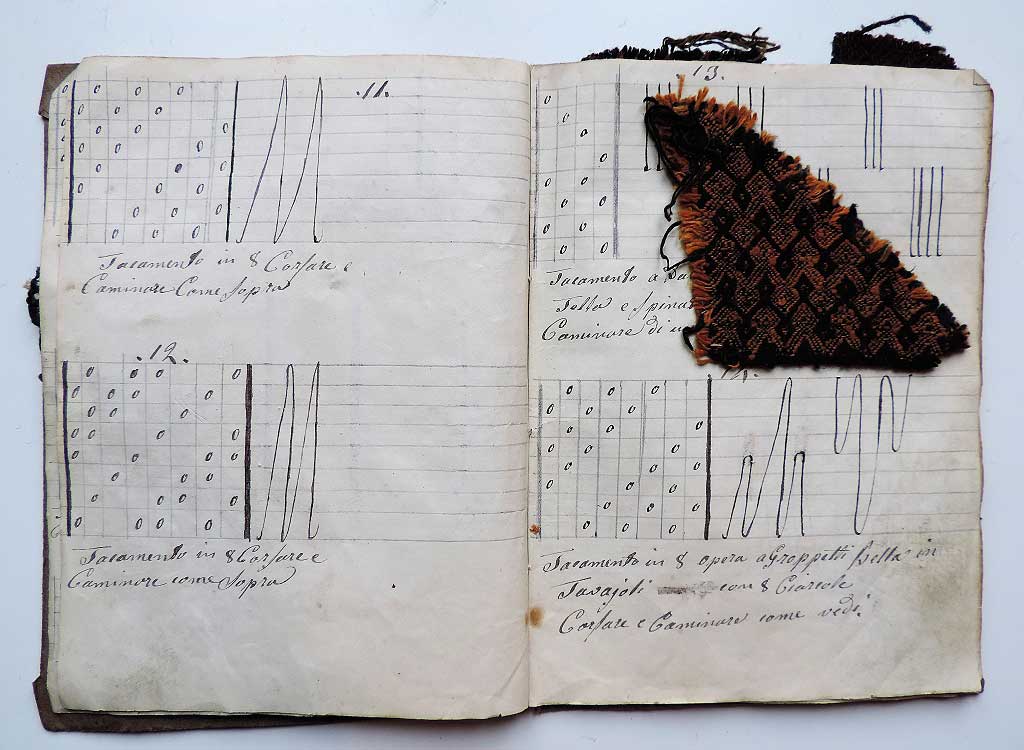 .11.
Tacamento in 8 Corsare e
Caminare Come Sopra
.12.
Tacamento in 8 Corsare e
Caminare come Sopra
13.
Tacamento a
Tella e Spina
Caminare di
14.
Tacamento in 8 opera a Groppetti bella in
Tavajoli con 8 Ciarcole
Corsare e Caminare come vedi